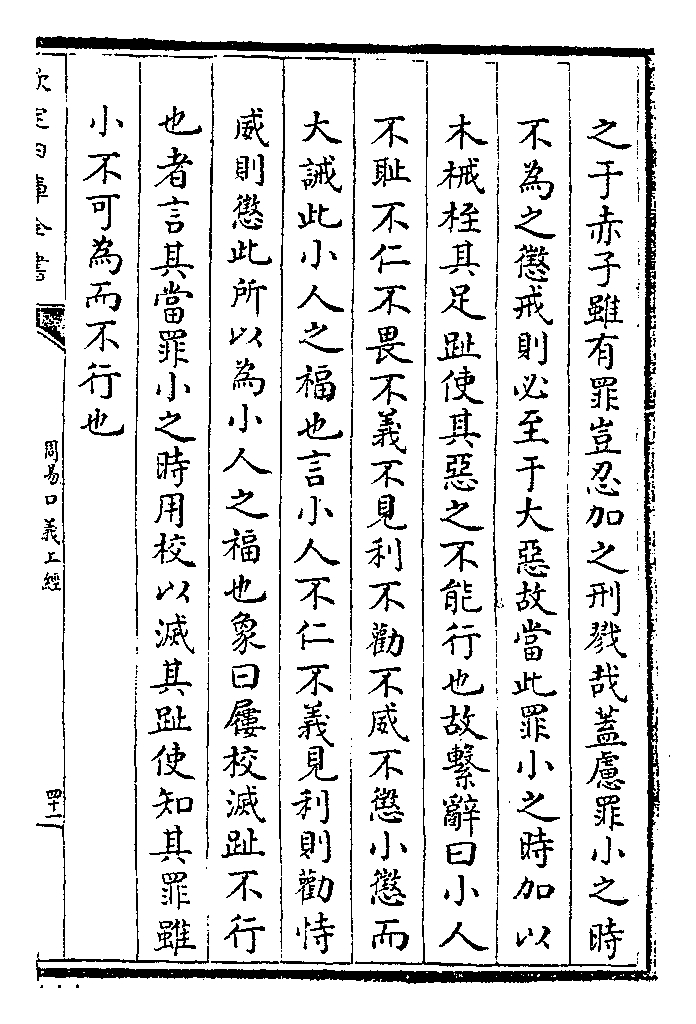 之于赤子雖有罪豈忍加之刑戮哉蓋慮罪小之時
不為之懲戒則必至于大惡故當此罪小之時加以
木械桎其足趾使其惡之不能行也故繫辭曰小人
不耻不仁不畏不義不見利不勸不威不懲小懲而
大誡此小人之福也言小人不仁不義見利則勸恃
威則懲此所以為小人之福也象曰屨校滅趾不行
也者言其當罪小之時用校以滅其趾使知其罪雖
小不可為而不行也
欽定四庫全書
周易口義上經
四十一